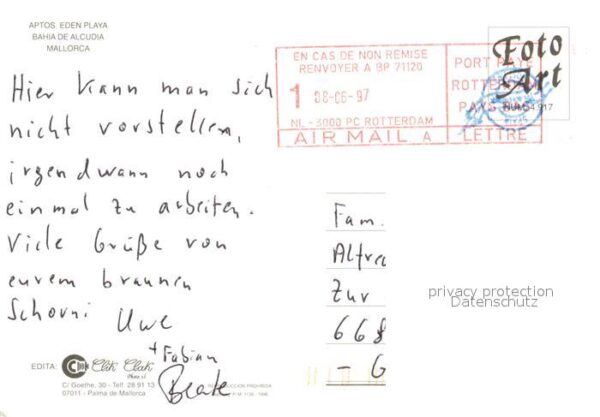 APTOS. EDEN PLAYA
BAHIA DE ALCUDIA
MALLORCA
Hier kann man sich
nicht vorstellen,
irgendwann noch
einmal zu arbeiten.
Viele Grüße von
eurem braunen
Schorni Uwe
+ Fabian
Beate
EN CAS DE NON REMISE
RENVOYER A BP 71120
1 08-06-97
NL - 3000 PC ROTTERDAM
AIR MAIL A
PORT PAYE
ROTTERDAM
PAYS BAS
LETTRE
Foto
Art
Fam.
Alfred
Zur
668
- G
privacy protection
Datenschutz
EDITA: Clik Clak
C/ Goethe, 30 - Telf. 28 91 13
07011 - Palma de Mallorca